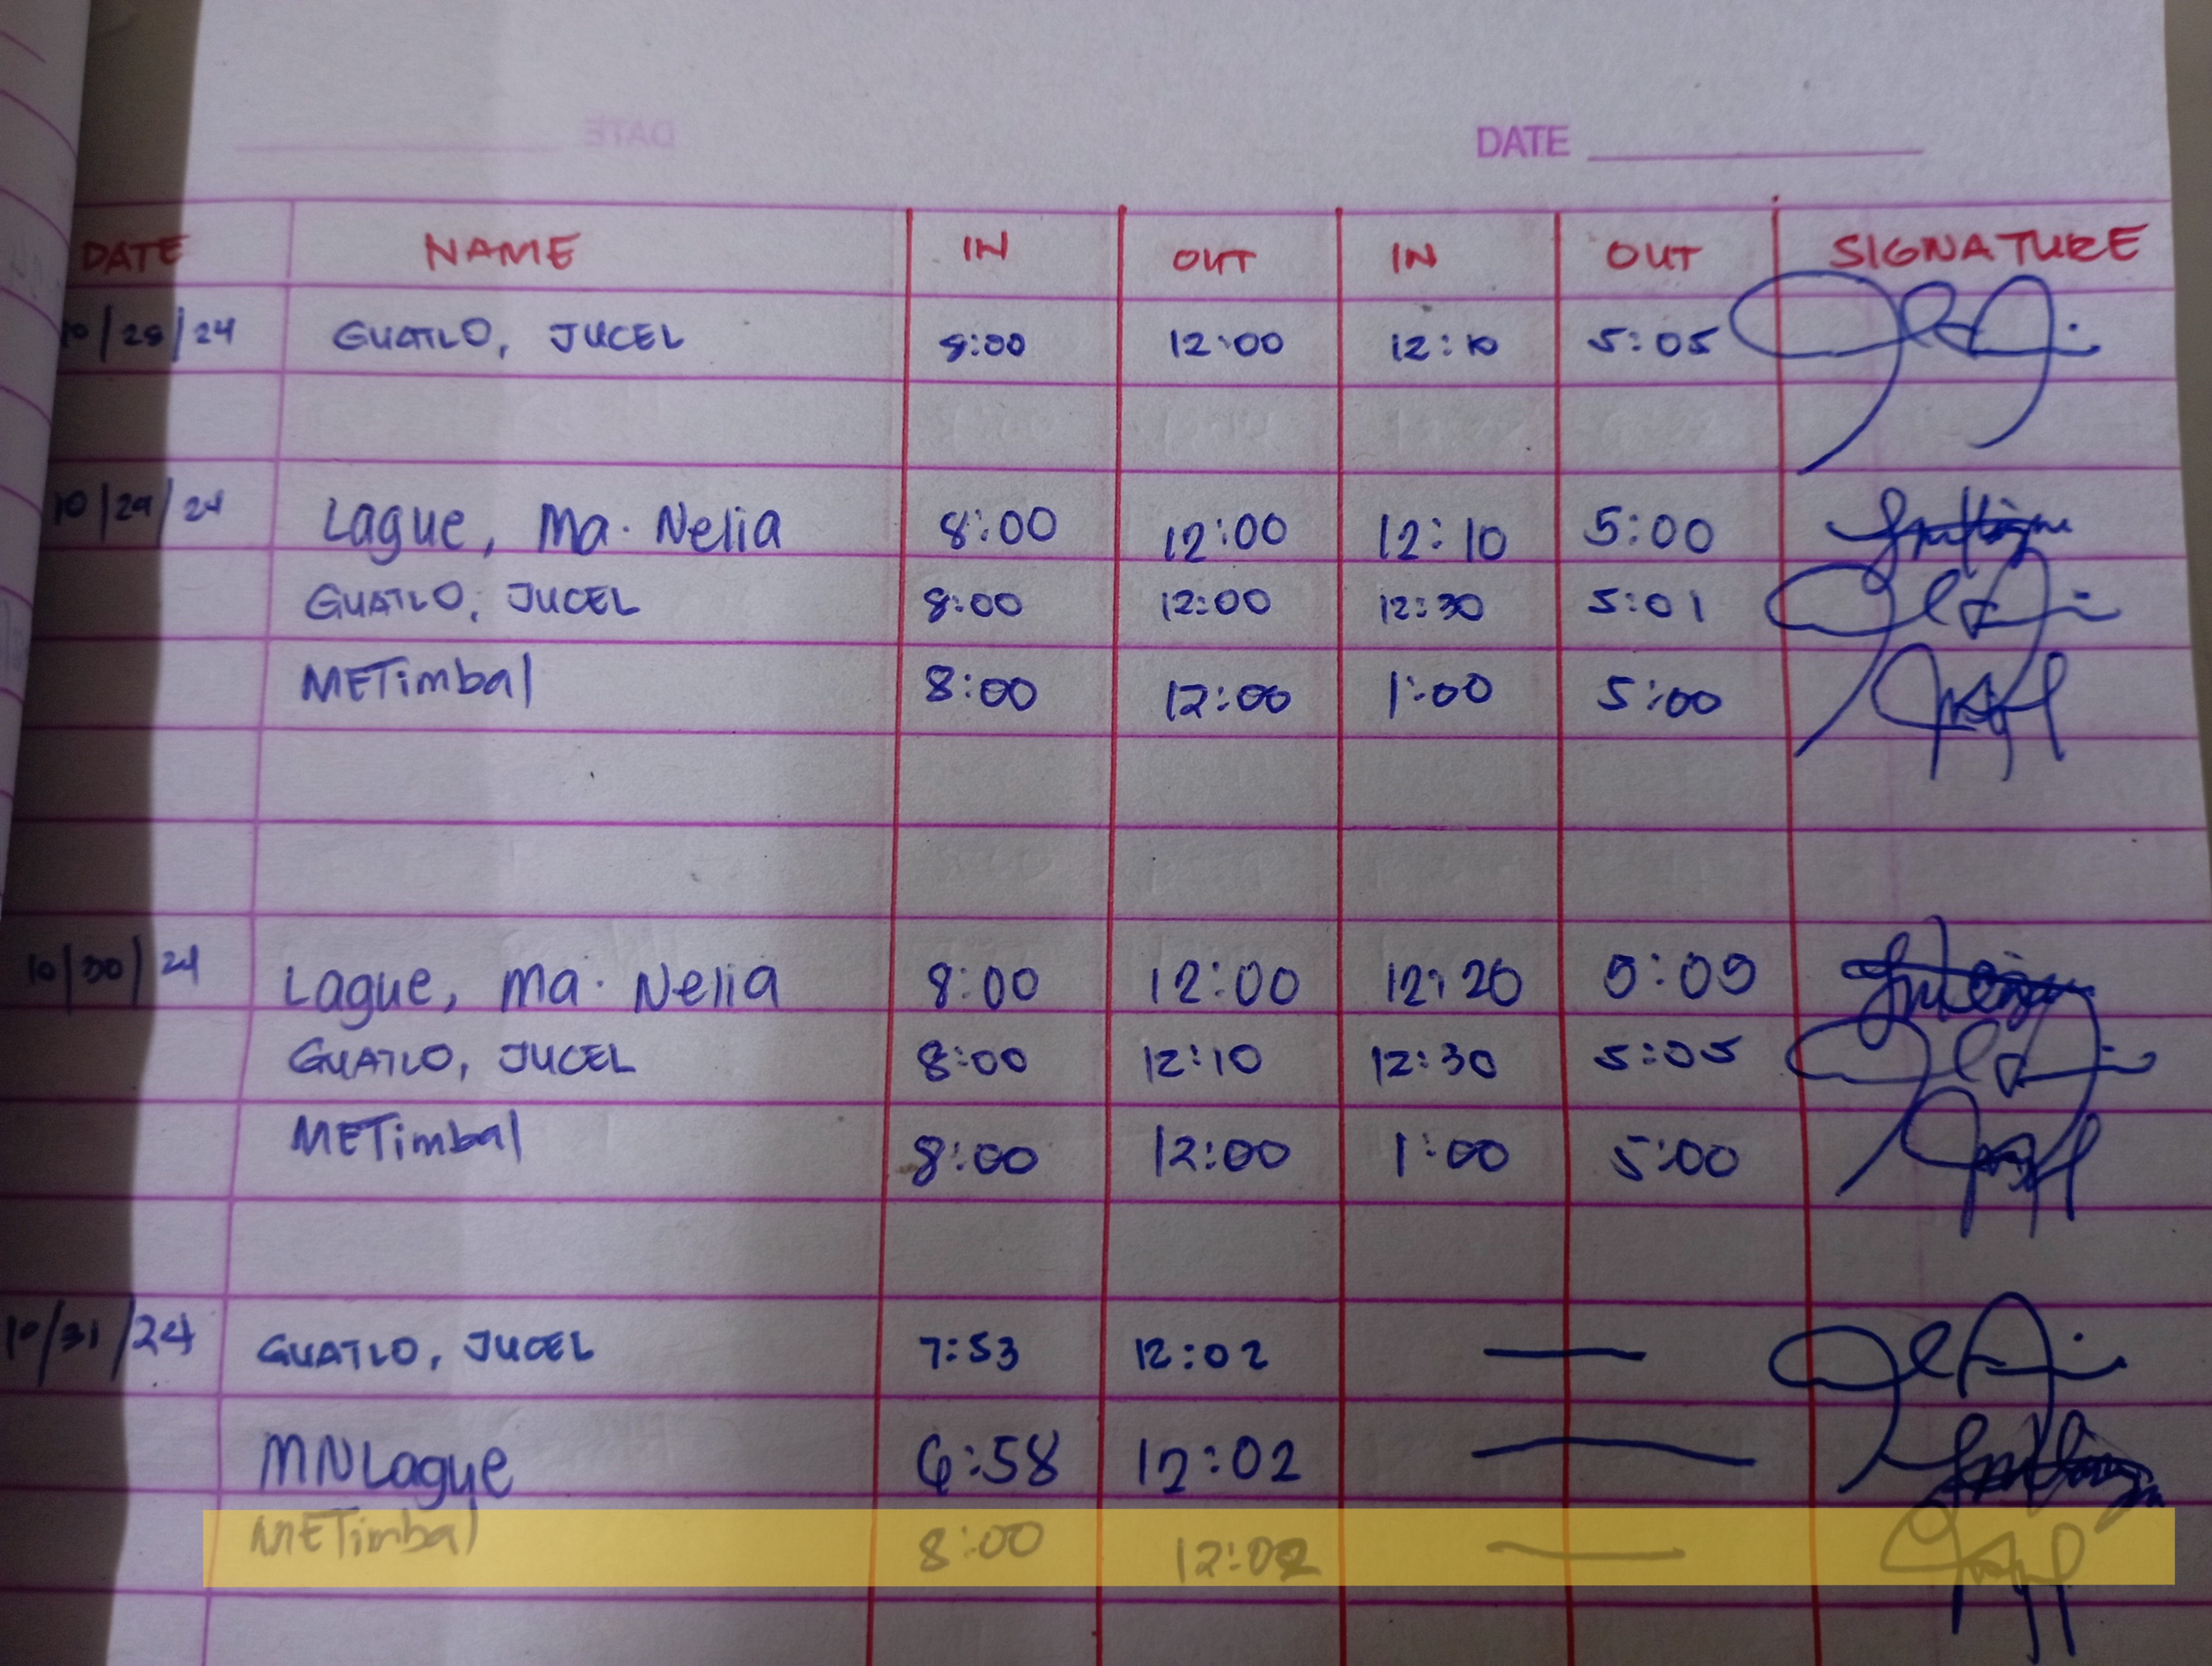 DATE
DATE NAME IN OUT IN OUT SIGNATURE
10/28/24 GUATLO, JUCEL 8:00 12:00 12:10 5:05
10/29/24 Lague, Ma. Nelia 8:00 12:00 12:10 5:00
GUATLO, JUCEL 8:00 12:00 12:30 5:01
METimbal 8:00 12:00 1:00 5:00
10/30/24 Lague, Ma. Nelia 8:00 12:00 12:20 5:05
GUATLO, JUCEL 8:00 12:10 12:30 5:05
METimbal 8:00 12:00 1:00 5:00
10/31/24 GUATLO, JUCEL 7:53 12:02 —
MNLague 6:58 12:02 —
METimbal 8:00 12:02 —